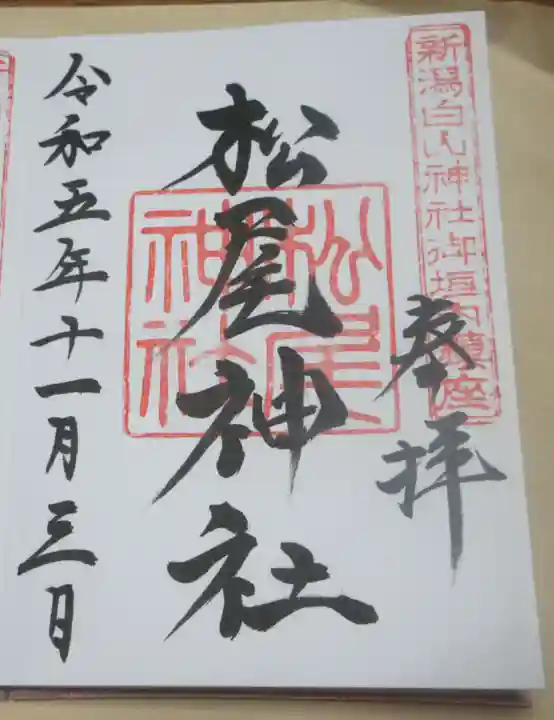 新潟白山神社御垣内鎮座
奉拝
松尾神社
松尾
神社
令和五年十一月三日